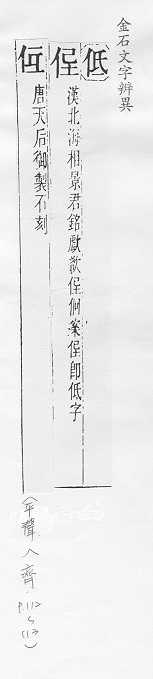 金石文字辨異
低
俓 漢北海相景君銘歔欷俓㣔案俓即低字
仾 唐天后御製石刻
(平聲八齊 P.112~113)